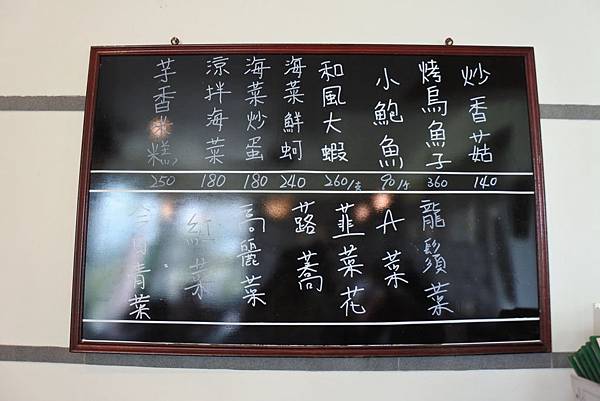 炒香菇 140
烤烏魚子 360
小鮑魚 90/个
和風大蝦 260/支
海菜鮮蚵 240
海菜炒蛋 180
涼拌海菜 180
芋香米糕 250
龍鬚菜
A菜
韮菜花
蕗蕎
高麗菜
紅菜
今日青菜